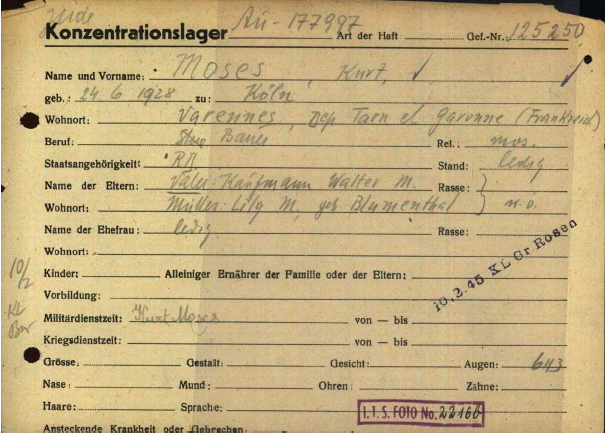 Jude
Konzentrationslager Au-177997 Art der Haft Gef.-Nr.: 125250
Name und Vorname: Moses, Kurt,
geb.: 24.6.1928 zu: Köln
Wohnort: Varennes, Dep Tarn et Garonne (Frankreich)
Beruf: Bauer Rel.: mos.
Staatsangehörigkeit: Stand: ledig
Name der Eltern: Vater: Kaufmann Walter M. Rasse:
Wohnort: Mutter: Lily M, geb. Blumenthal
Name der Ehefrau: ledig Rasse:
Wohnort:
10.2.45 KL Gr Rosen
10/2
KL
Kinder: Alleiniger Ernährer der Familie oder der Eltern:
Vorbildung:
Militärdienstzeit: Kurt Moses von — bis
Kriegsdienstzeit: von — bis
Grösse: Gestalt: Gesicht: Augen: 643
Nase: Mund: Ohren: Zähne:
Haare: Sprache: I.T.S. FOTO No. 22166
Ansteckende Krankheit oder Gebrechen: